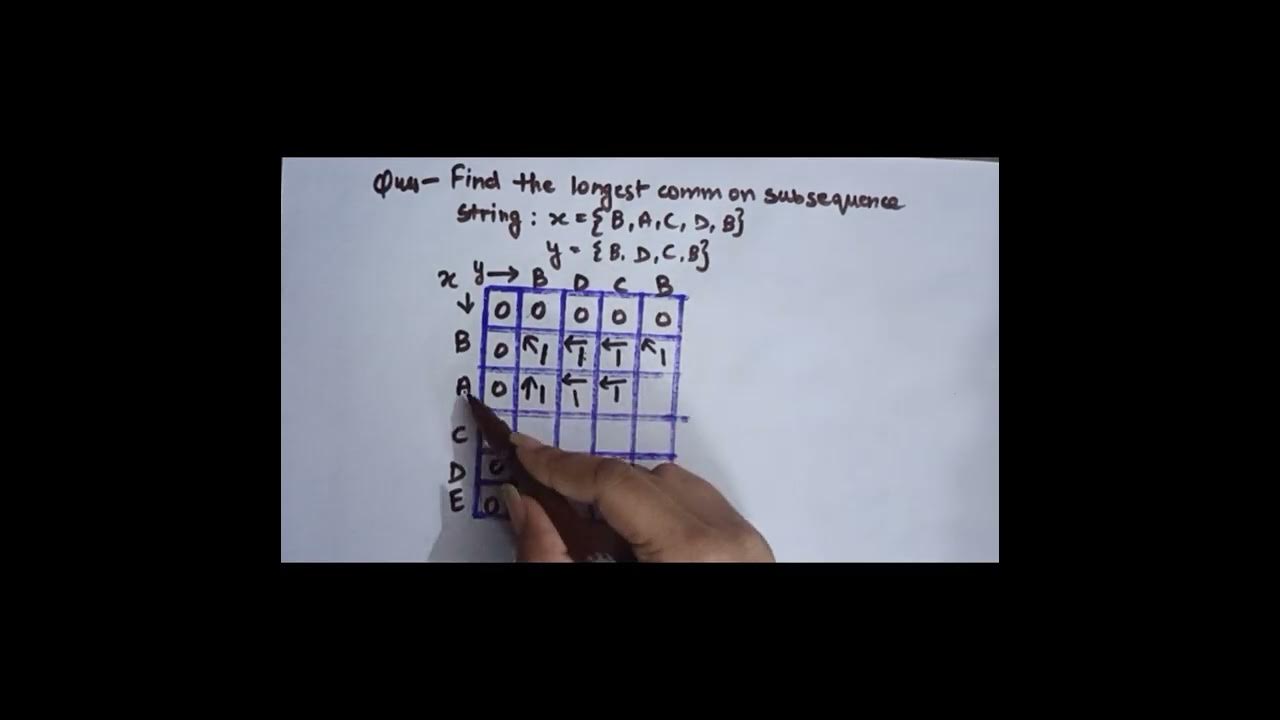 Ques- Find the longest common subsequence
string : x = {B, A, C, D, B}
y = {B. D, C, B}
x y → B D C B
↓ 0 0 0 0 0
B 0 ↖1 ←1 ←1 ↖1
A 0 ↑1 ←1 ←1
C
D 0
E 0